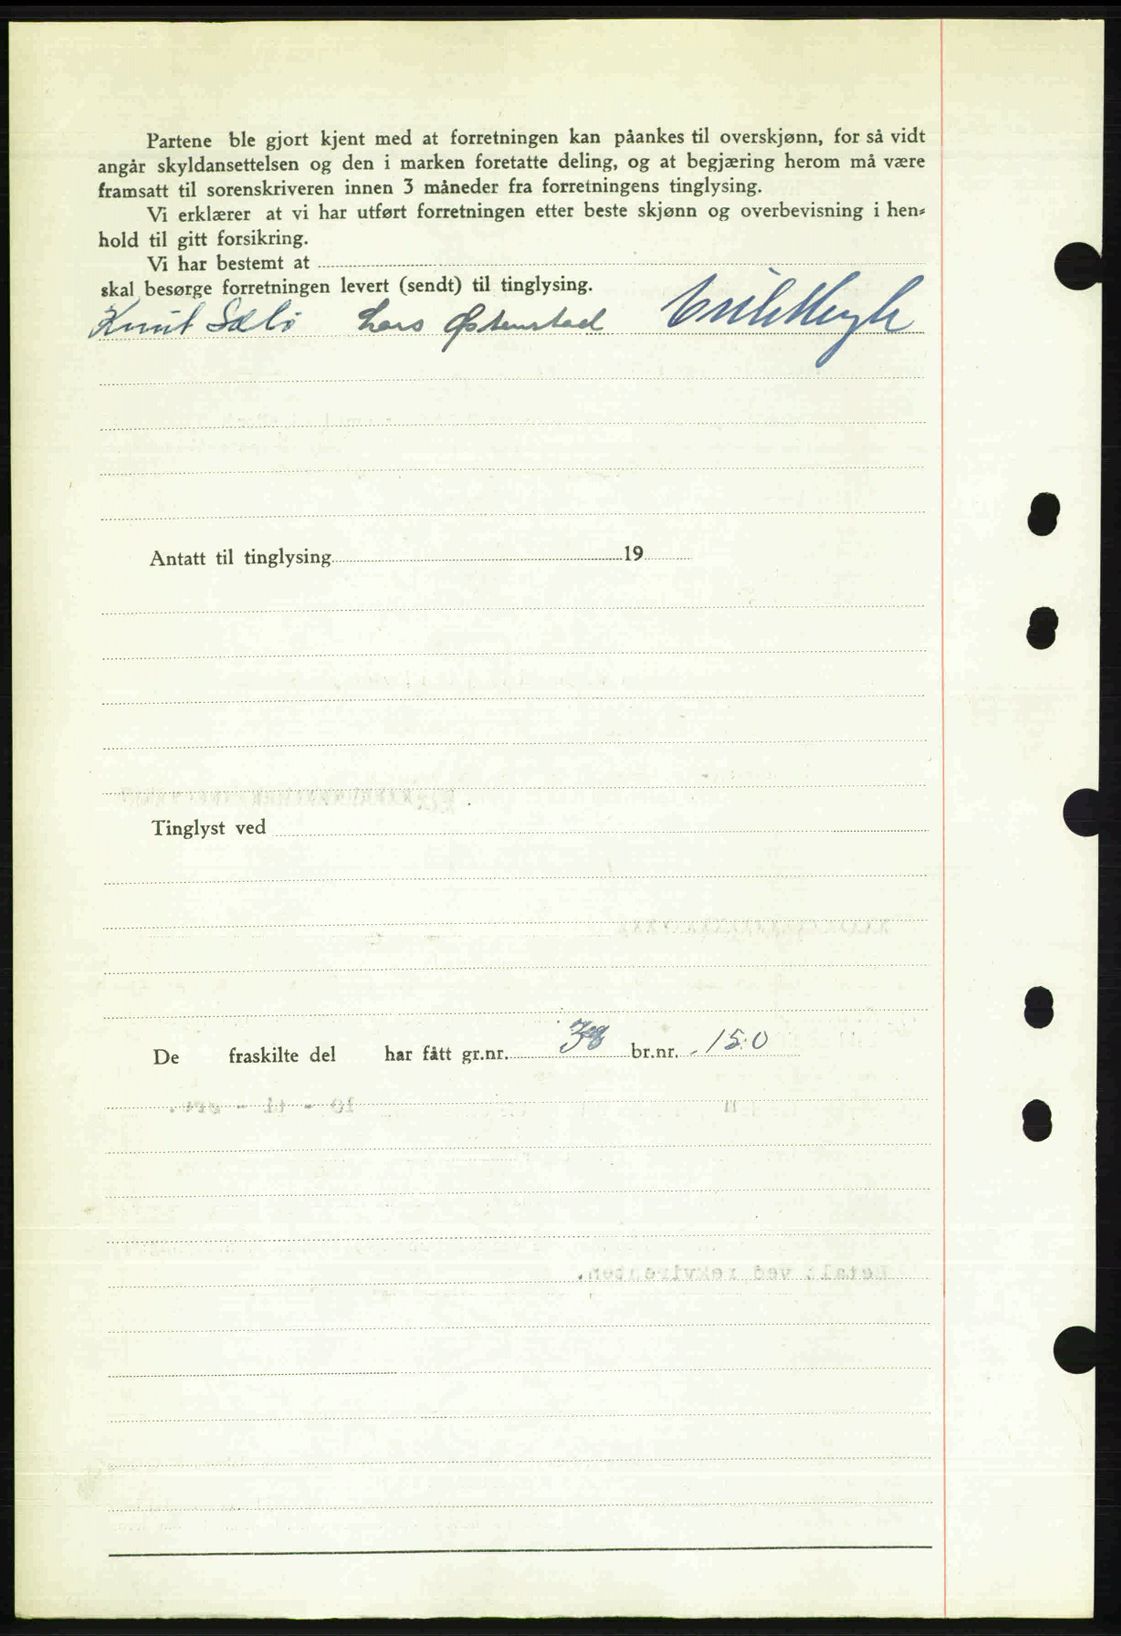 Partene ble gjort kjent med at forretningen kan påankes til overskjønn, for så vidt
angår skyldansettelsen og den i marken foretatte deling, og at begjæring herom må være
framsatt til sorenskriveren innen 3 måneder fra forretningens tinglysing.
Vi erklærer at vi har utført forretningen etter beste skjønn og overbevisning i hen-
hold til gitt forsikring.
Vi har bestemt at
skal besørge forretningen levert (sendt) til tinglysing.
Knut Sælö Lars Østenstad
Antatt til tinglysing 19
Tinglyst ved
De fraskilte del har fått gr.nr. 38 br.nr. 150